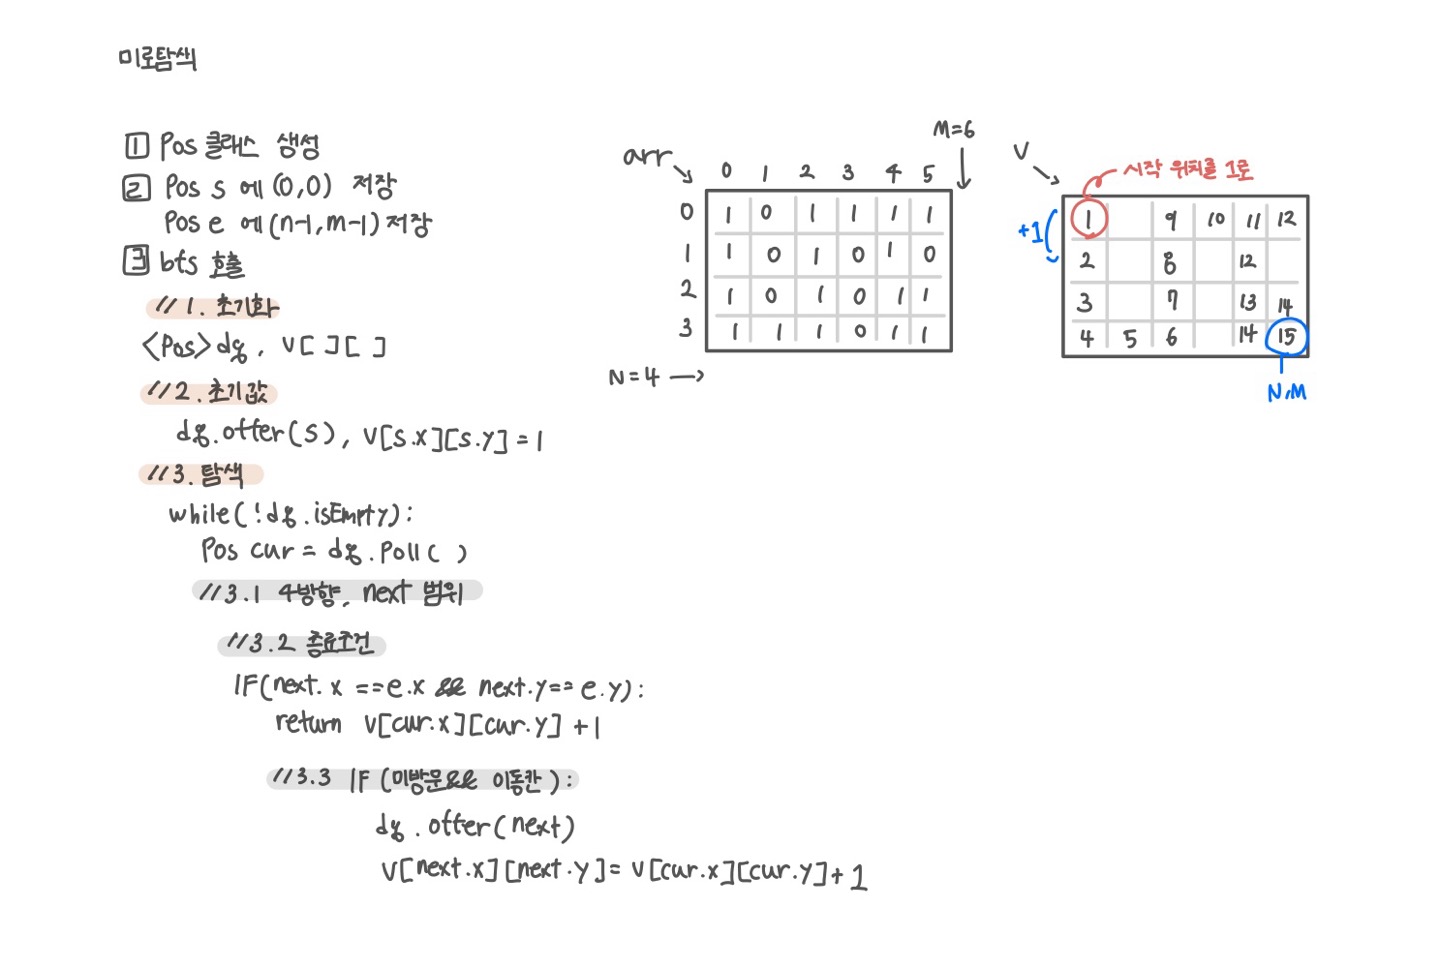 미로탐색
1 Pos 클래스 생성
2 Pos s 에 (0,0) 저장
Pos e 에 (n-1, m-1) 저장
3 bfs 호출
// 1. 초기화
<Pos> dq, v[ ][ ]
// 2. 초기값
dq.offer(s), v[s.x][s.y] = 1
// 3. 탐색
while(!dq.isEmpty):
Pos cur = dq.poll( )
// 3.1 4방향, next 범위
// 3.2 종료조건
IF(next.x == e.x && next.y == e.y):
return v[cur.x][cur.y] + 1
// 3.3 IF (미방문 && 이동칸):
dq.offer(next)
v[next.x][next.y] = v[cur.x][cur.y] + 1
M=6
arr
0 1 2 3 4 5
0 1 0 1 1 1 1
1 1 0 1 0 1 0
2 1 0 1 0 1 1
3 1 1 1 0 1 1
N=4
v
시작 위치를 1로
+1
1 9 10 11 12
2 8 12
3 7 13 14
4 5 6 14 15
N,M